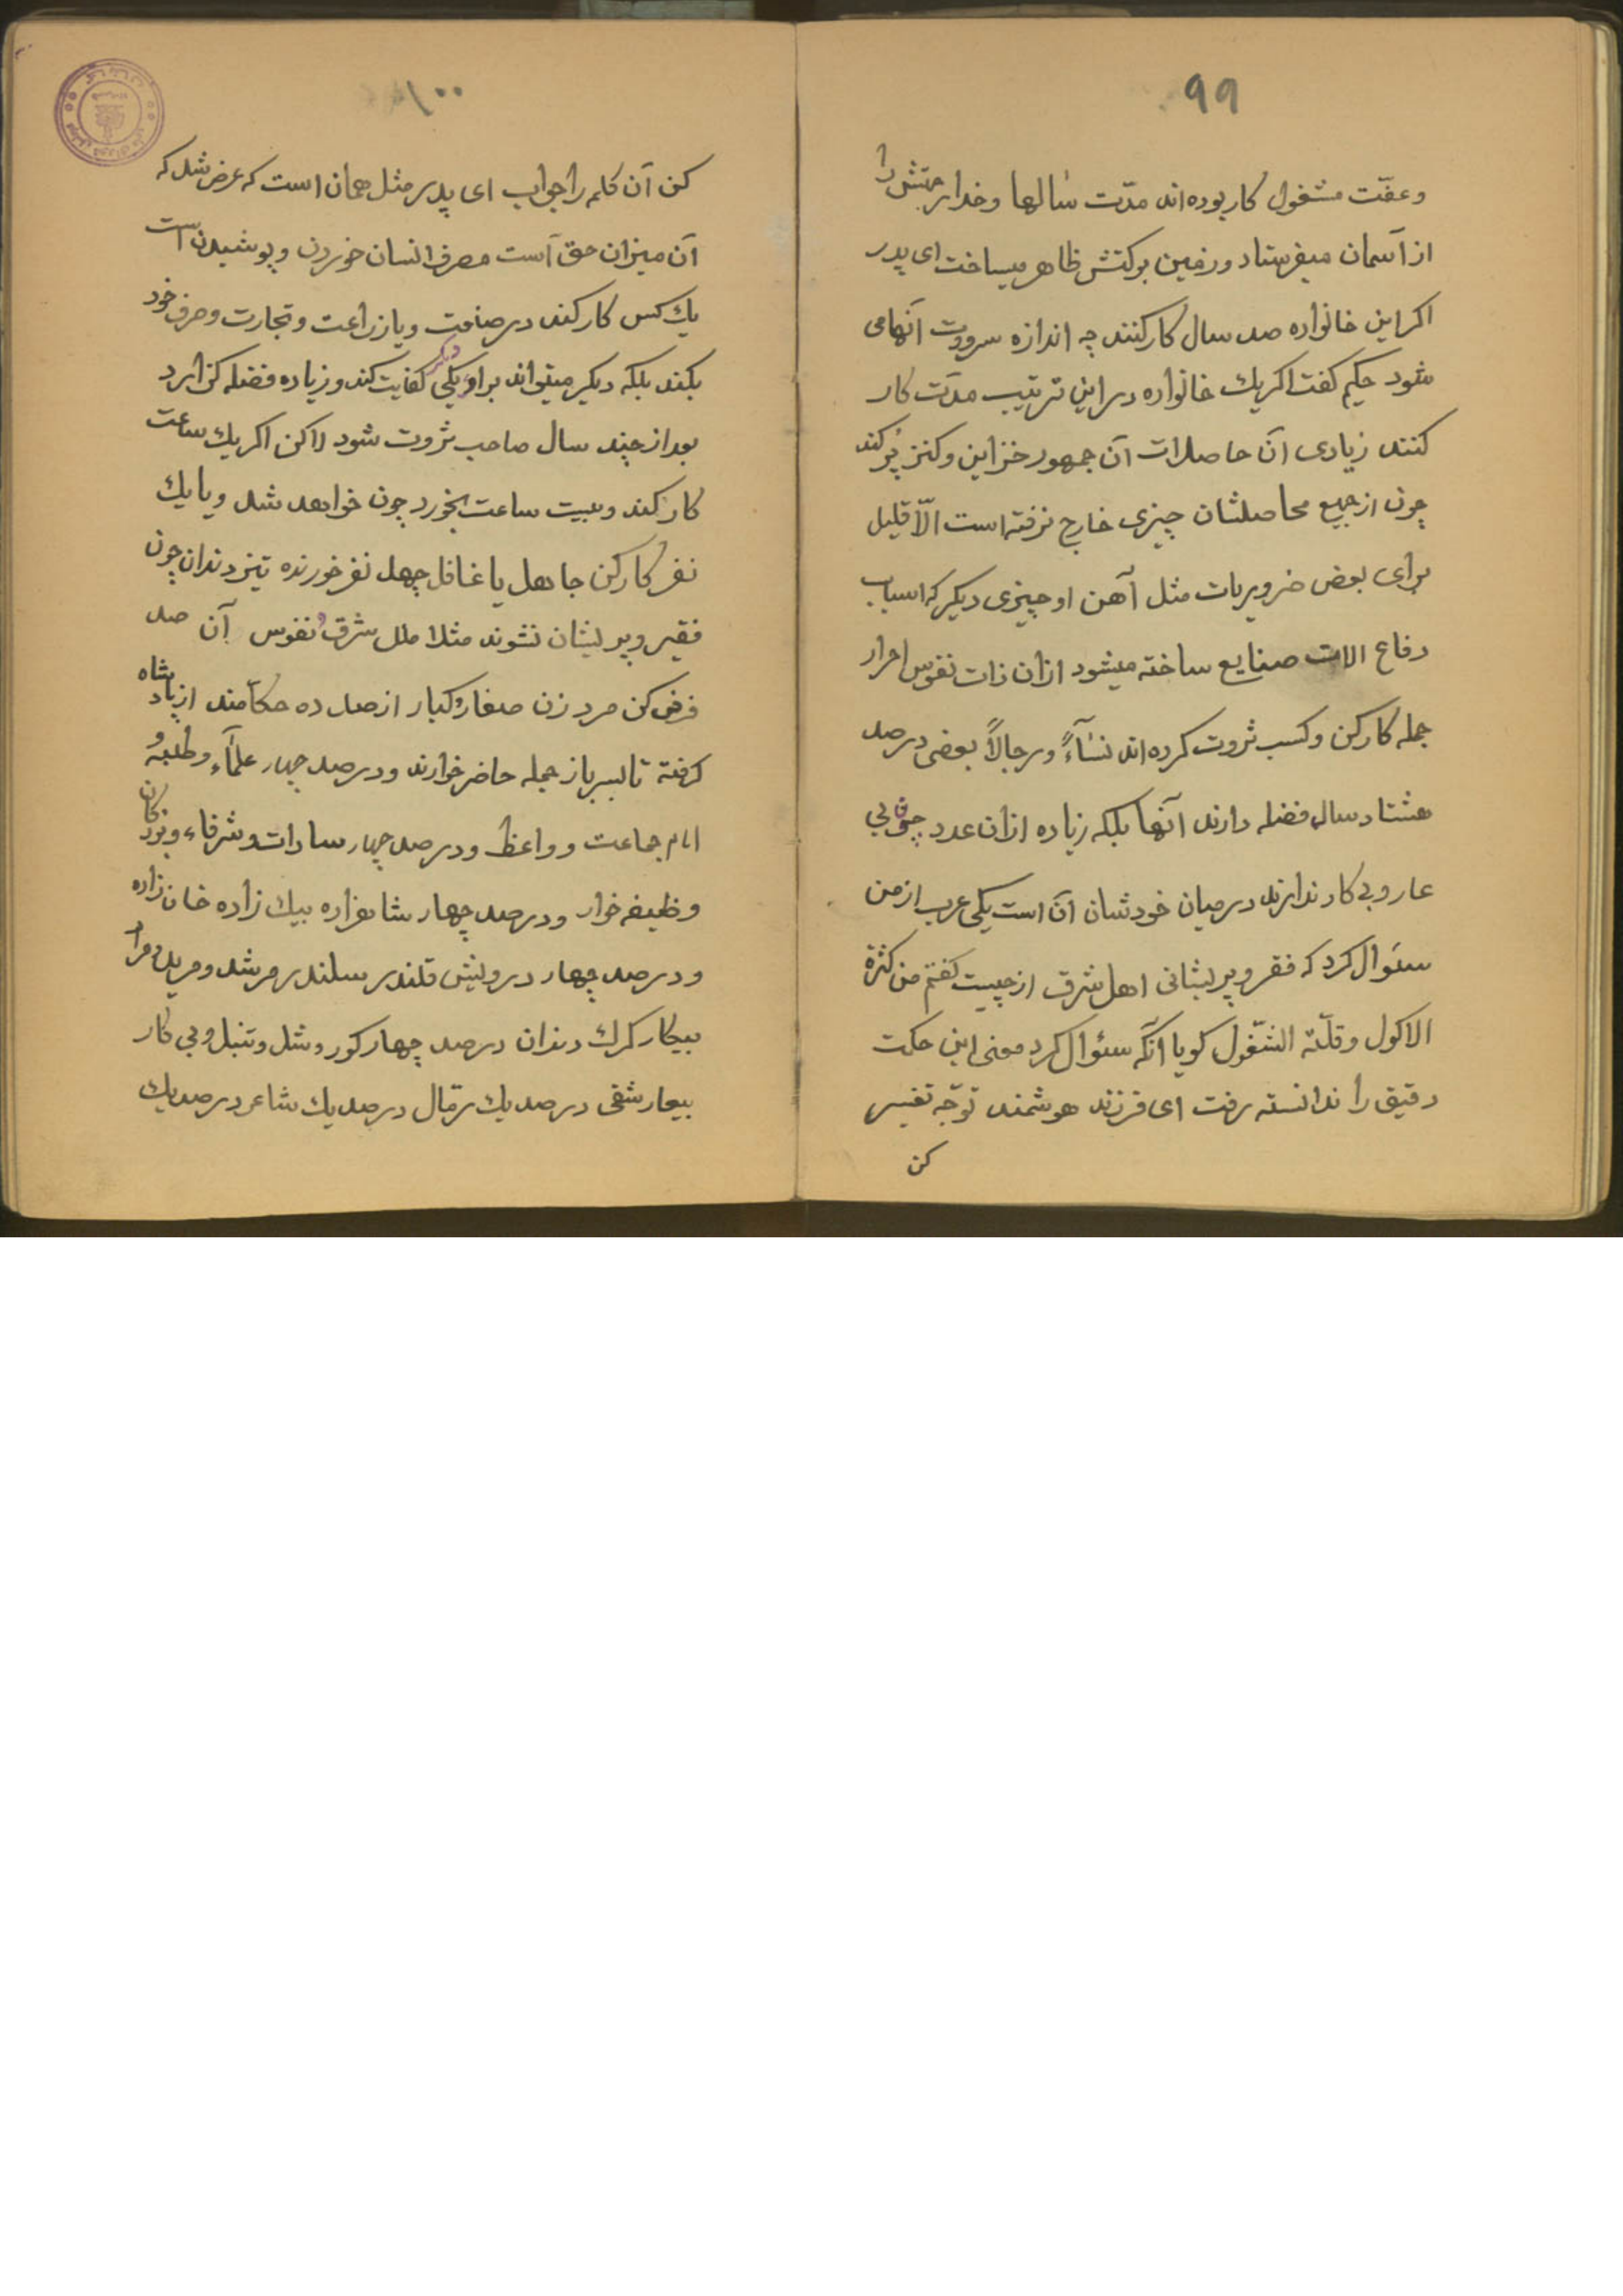 ۹۹
وعفّت مشغول کار بوده‌اند مدّت سٰالها وخدا رحمتش را
از آسمان میفرستاد ورزمین برکتش ظاهر میساخت ای پدر
اکر این خانواره صد سال کار کنند چه اندازه سروت آنهامی
شود حکیم کفت اکر یك خانواره در این ترتیب مدّت کار
کنند زیادی آن حاصلات آن جمهور خزاین وکنز پُر کند
چون از جمیع محاصلشان چیزی خارج نرفته است الّا قلیل
برای بعض ضروریات مثل آهن او چیزی دیکر که اسباب
دفاع الات صنایع ساخته میشود ازان ذات نفوس احرار
جمله کارکن وکسب ثروت کرده‌اند نسٰآءً ورجالاً بعضی درصد
هشتاد سال فضله دارند آنها بلکه زیاده ازان عدد چوقابی
عار وبی کار ندارند در میان خودشان آن است یکی عرب از من
سئوال کرد که فقر وپریشانی اهل شرق از چیست کفتم من کثرة
الاکول وقلّتة الشّغول کویا آنکه سئوال کرد معنی این حکت
دقیق را ندانسته رفت ای فرزند هوشمند توجّه تفسیر
کن
۱۰۰
کن آن کلمه را جواب ای پدر مثل همان است که عرض شد که
آن میزان حق آست مصرف انسان خوردن وپوشیدن است
یك کس کار کند در صنعت ویا زراعت وتجارت وصرف خود
بکند بلکه دیکر میتواند براو یکی دیکر کفایت کند وزیاده فضله کزارد
بعد از چند سال صاحب ثروت شود لاکن اکر یك ساعت
کار کند وبیت ساعت بخورد چون خواهد شد ویا یك
نفر کارکن جاهل یا غافل چهل نفر خورنده تیز دندان چون
فقیر وپریشان نشوند مثلا ملل شرق و نفوس آن صد
فرض کن مرد زن صغار وکبار از صد ده حکآمند از پادشاه
کرفته تا سرباز جمله حاضر خوارند ودرصد چهار علمآء وطلبه و
امام جماعت وواعظ ودرصد چهار سادات وشرفاء وبزرکان
وظیفه خوار ودرصد چهار شاهزاده بیك زاده خان زاده
ودرصد چهار درویش قلندر سلندر مرشد ومرید ومراد
بیکار کرك دندان درصد چهار کور وشل وتنبل وبی کار
بیعار شقی درصد یك رمّال درصد یك شاعر درصد یك